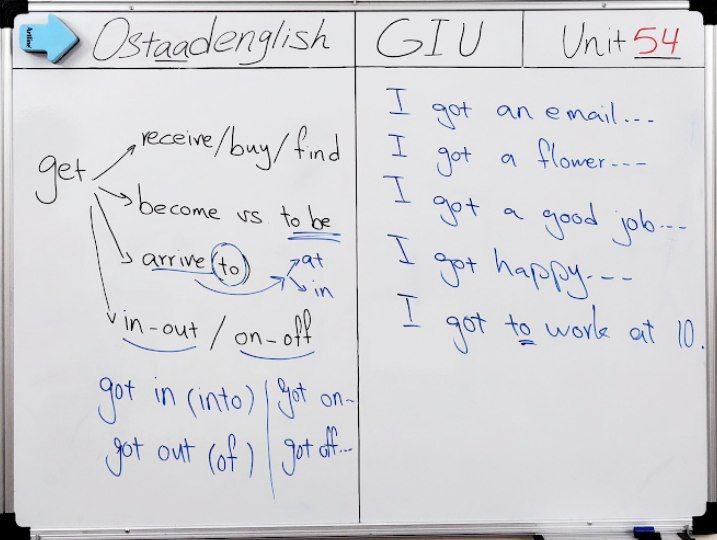 Ostaadenglish
GIU
Unit 54
get
receive/buy/find
become vs to be
arrive (to)
at
in
in-out / on-off
got in (into) | got on-
got out (of) | got off...
I got an email...
I got a flower---
I got a good job---
I got happy---
I got to work at 10.